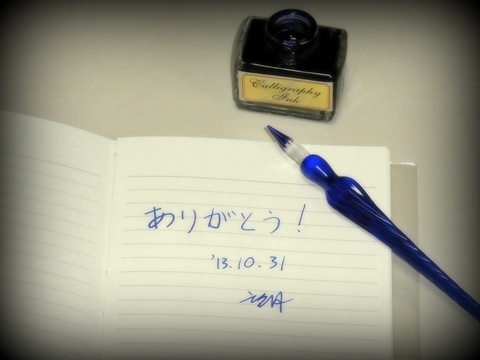 Calligraphy
Ink
ありがとう!
'13.10.31